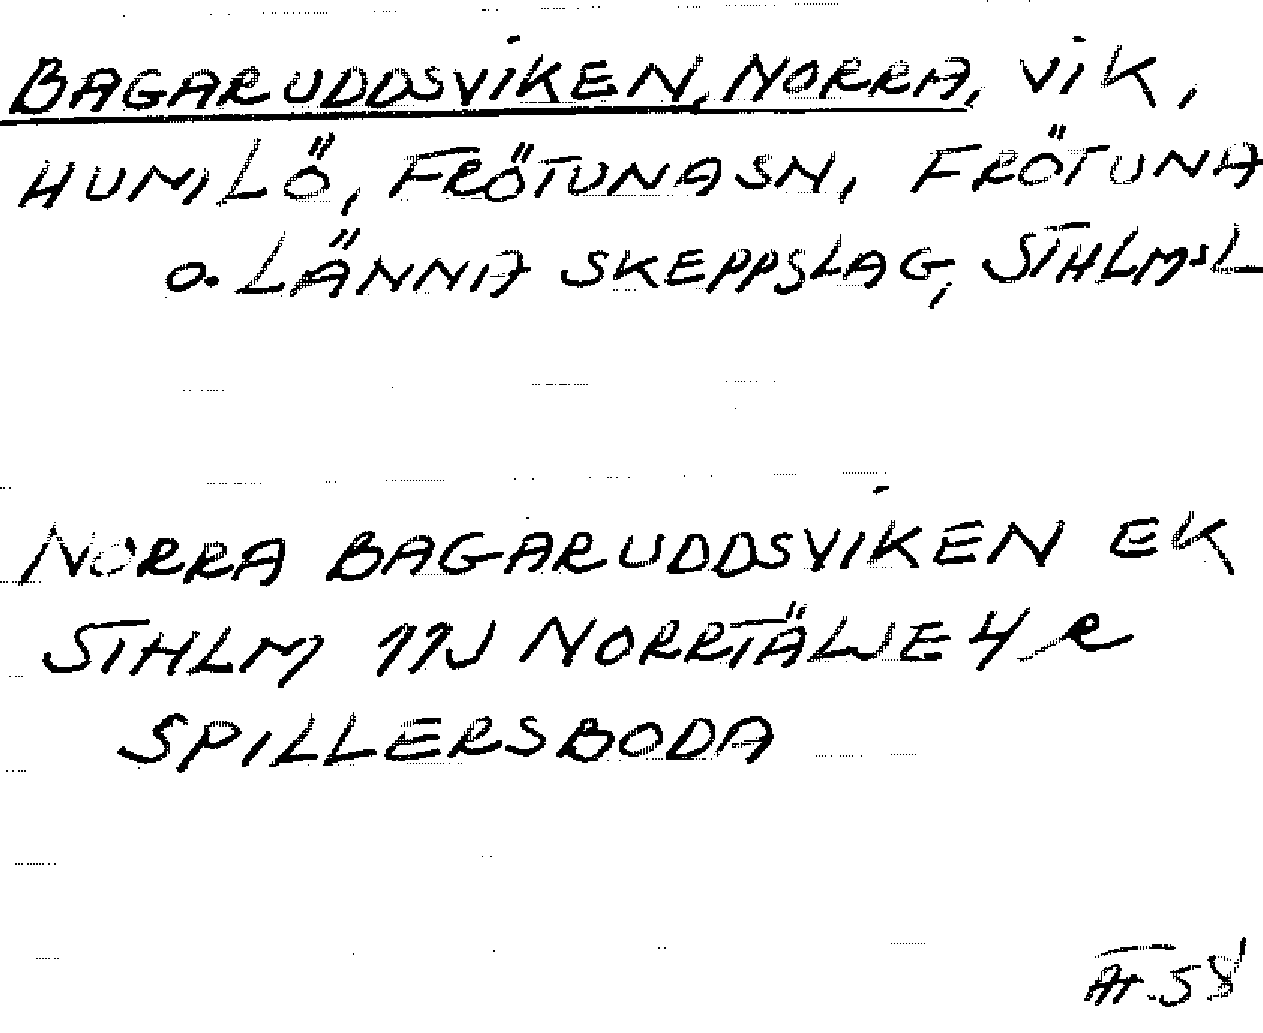 BAGARUDDSVIKEN, NORRA, VIK,
HUMLÖ, FRÖTUNA SN, FRÖTUNA
O. LÄNNA SKEPPSLAG, STHLMSL
NORRA BAGARUDDSVIKEN EK
STHLM 11J NORRTÄLJE 4
SPILLERSBODA
58